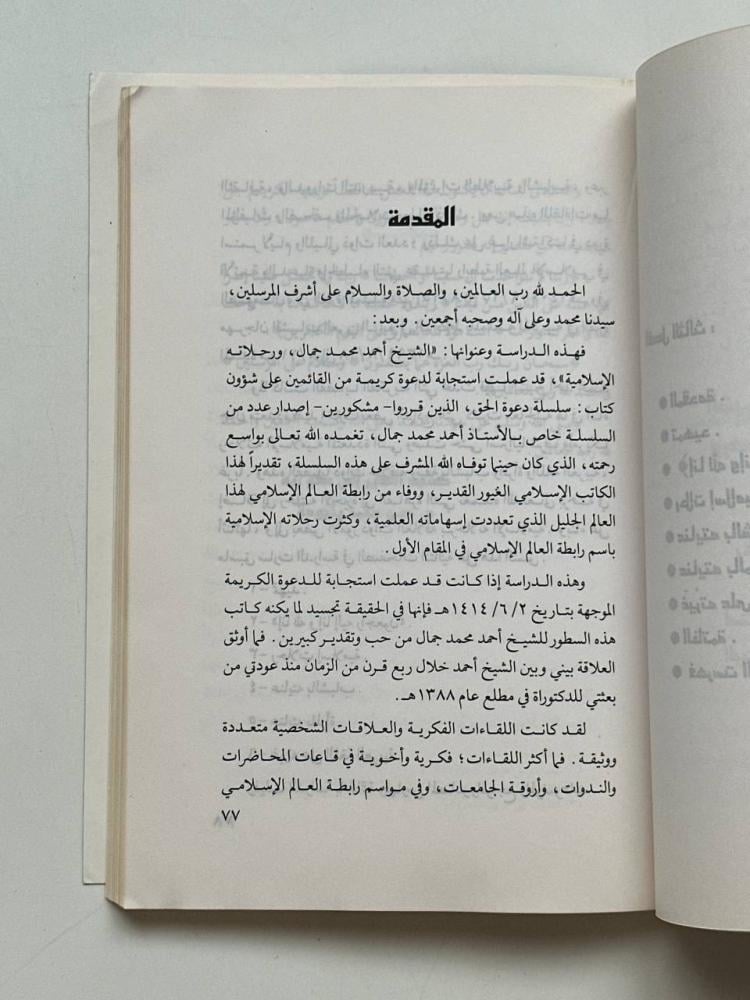 المقدمة
الحمد لله رب العالمين، والصلاة والسلام على أشرف المرسلين،
سيدنا محمد وعلى آله وصحبه أجمعين. وبعد:
فهذه الدراسة وعنوانها: «الشيخ أحمد محمد جمال، ورحلاته
الإسلامية»، قد عملت استجابة لدعوة كريمة من القائمين على شؤون
كتاب: سلسلة دعوة الحق، الذين قرروا- مشكورين- إصدار عدد من
السلسلة خاص بالأستاذ أحمد محمد جمال، تغمده الله تعالى بواسع
رحمته، الذي كان حينما توفاه الله المشرف على هذه السلسلة، تقديراً لهذا
الكاتب الإسلامي الغيور القدير، ووفاء من رابطة العالم الإسلامي لهذا
العالم الجليل الذي تعددت إسهاماته العلمية، وكثرت رحلاته الإسلامية
باسم رابطة العالم الإسلامي في المقام الأول.
وهذه الدراسة إذا كانت قد عملت استجابة للدعوة الكريمة
الموجهة بتاريخ ٢/ ٦/ ١٤١٤هـ فإنها في الحقيقة تجسيد لما يكنه كاتب
هذه السطور للشيخ أحمد محمد جمال من حب وتقدير كبيرين. فما أوثق
العلاقة بيني وبين الشيخ أحمد خلال ربع قرن من الزمان منذ عودتي من
بعثتي للدكتوراة في مطلع عام ١٣٨٨هـ.
لقد كانت اللقاءات الفكرية والعلاقات الشخصية متعددة
ووثيقة. فما أكثر اللقاءات؛ فكرية وأخوية في قاعات المحاضرات
والندوات، وأروقة الجامعات، وفي مواسم رابطة العالم الإسلامي
٧٧